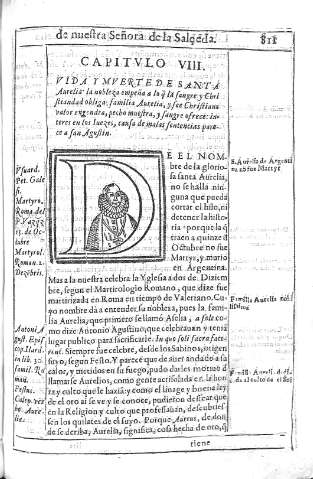 de nuestra Señora de la Salçeda. 811
CAPITVLO VIII.
VIDA Y MVERTE DE SANTA
Aurelia: la nobleza empeña a lo q̃ la sangre y Chri
stiandad obliga: familia Aurelia, y ser Christiana
valor engendra, pecho muestra, y sangre ofrece: in
teres en los Iuezes, causa de malas sentencias pare-
ce a san Agustin.
DE EL NOM-
bre de la glorio-
sa santa Aurelia,
no se halla nin-
guna que pueda
cortar el hilo, ni
detener la histo-
ria porque la q̃
traen a quinze d
Octubre no fue
Martyr, y mario
en Argentina.
Mas a la nuestra celebra la Yglesia a dos de Diziem
bre, segun el Martirologio Romano, que dize fue
martirizada en Roma en tiempo de Valeriano. Cu-
yo nombre dà a entender su nobleza, pues la fami-
lia Aurelia, que primero se llamò Aselia, a sole co-
mo dize Antonio Agustino, que celebrauan y tenia
lugar publico para sacrificarle. In quo soli sacra face-
rent. Siempre fue celebre, desde los Sabinos, origen
suyo, segun Festo. Y parece que de auer andado a su
calor, y metidos en su fuego, pudo darles motiuo d
llamarse Aurelios, como gente acrisolada en la hon
ra y culto que le hazia: y como el linage y buena ley
de el oro assi se ve y se conoce, pudieron dessear que
en la Religion y culto que professauan, descubries-
sen los quilates de el suyo. Porque Aureus, de don-
de se deriba, Aurelia, significa cosa hecha de oro, q̃
tiene
Vsuard.
Pet. Gale
si.
Martyro.
Roma del
Octu
bre
Martyrol.
Roman. 2.
Dezẽbris.
Antoni. A
gust. Epis
Festus.
S. Aurelia de Argenti
na no fue Martyr
Familia Aurelia